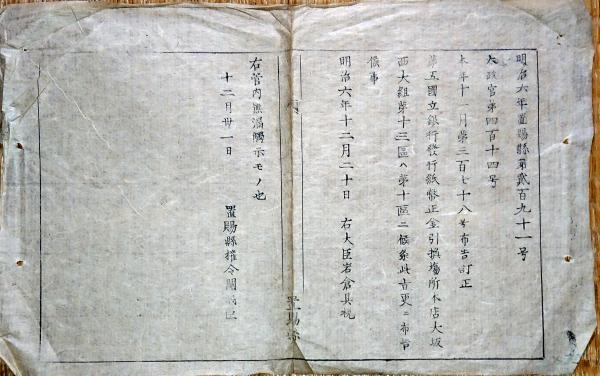 明治六年置賜縣第貳百九十一号
太政官第四百十四号
本年十一月第三百七十八号布告訂正
第五國立銀行發行紙幣正金引換塲所本店大坂
西大組第十三區ハ第十區ニ候条此旨更ニ布告
候事
明治六年十二月二十日 右大臣岩倉具視
右管内無漏觸示モノ也
十二月卅一日
置賜縣権令関
置賜縣